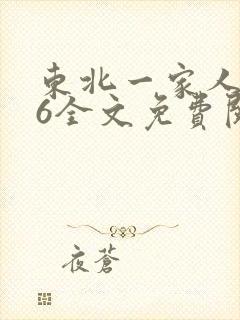 東北一家人
6全文免費閱
夜蒼